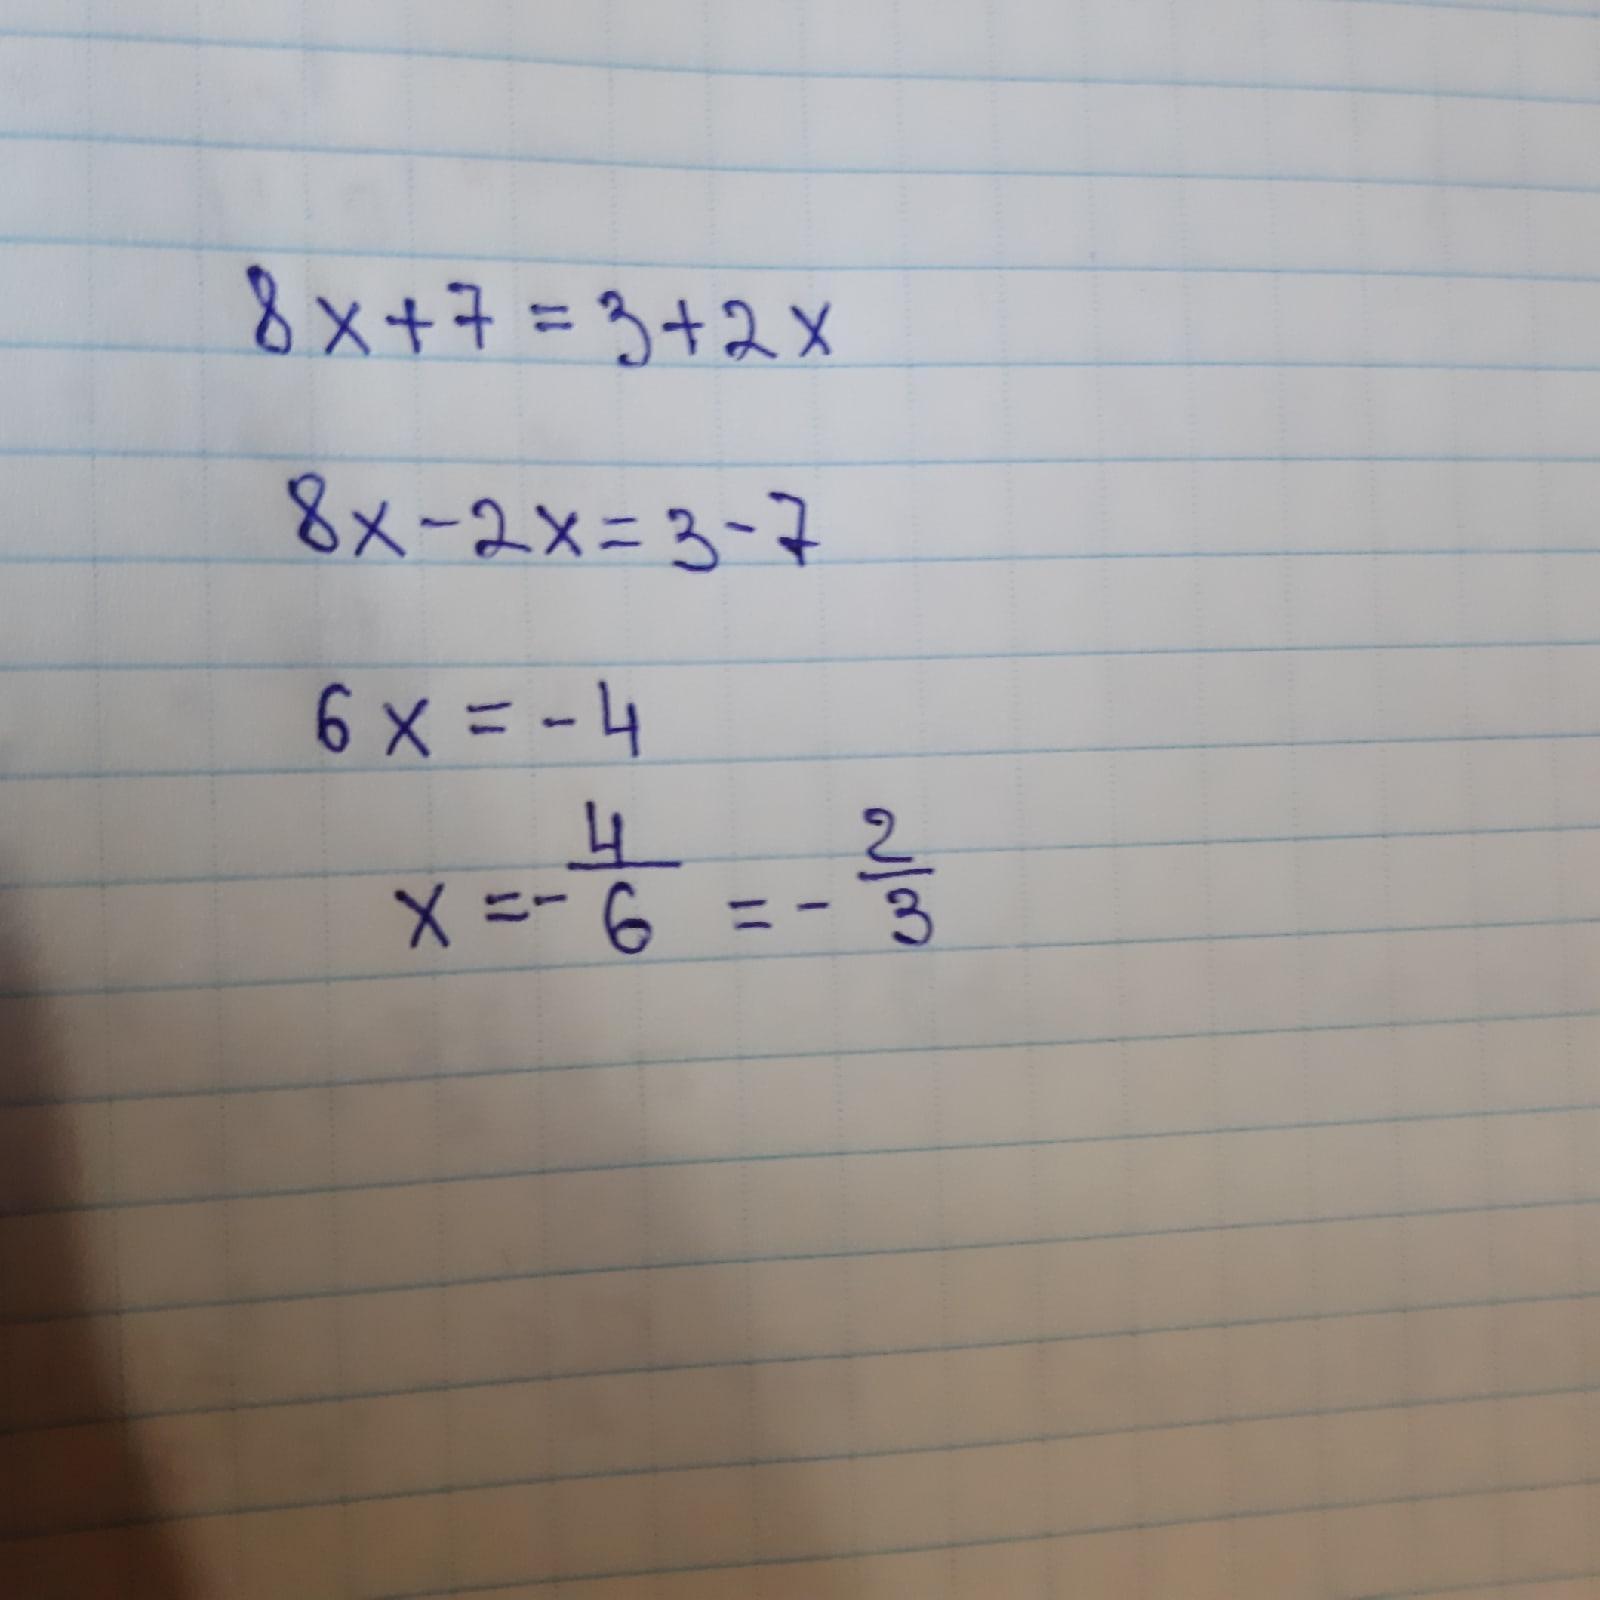 8x+7=3+2x
8x-2x=3-7
6x=-4
x=-4/6=-2/3